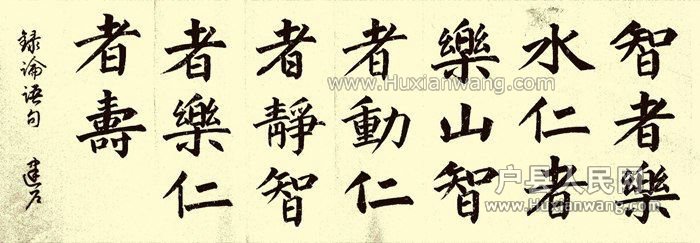 智者樂
水仁者
樂山智
者動仁
者靜智
者樂仁
者壽
録论语句 建
www.Huxianwang.com
户县人民网
www.Huxianwang.com